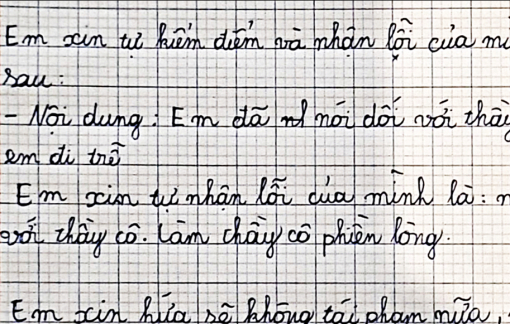 Em xin tự kiểm điểm và nhận lỗi của mì
sau:
- Nội dung: Em đã nói dối với thầy
em đi trễ
Em xin tự nhận lỗi của mình là: n
với thầy cô. Làm thầy cô phiền lòng.
Em xin hứa sẽ không tái phạm nữa,